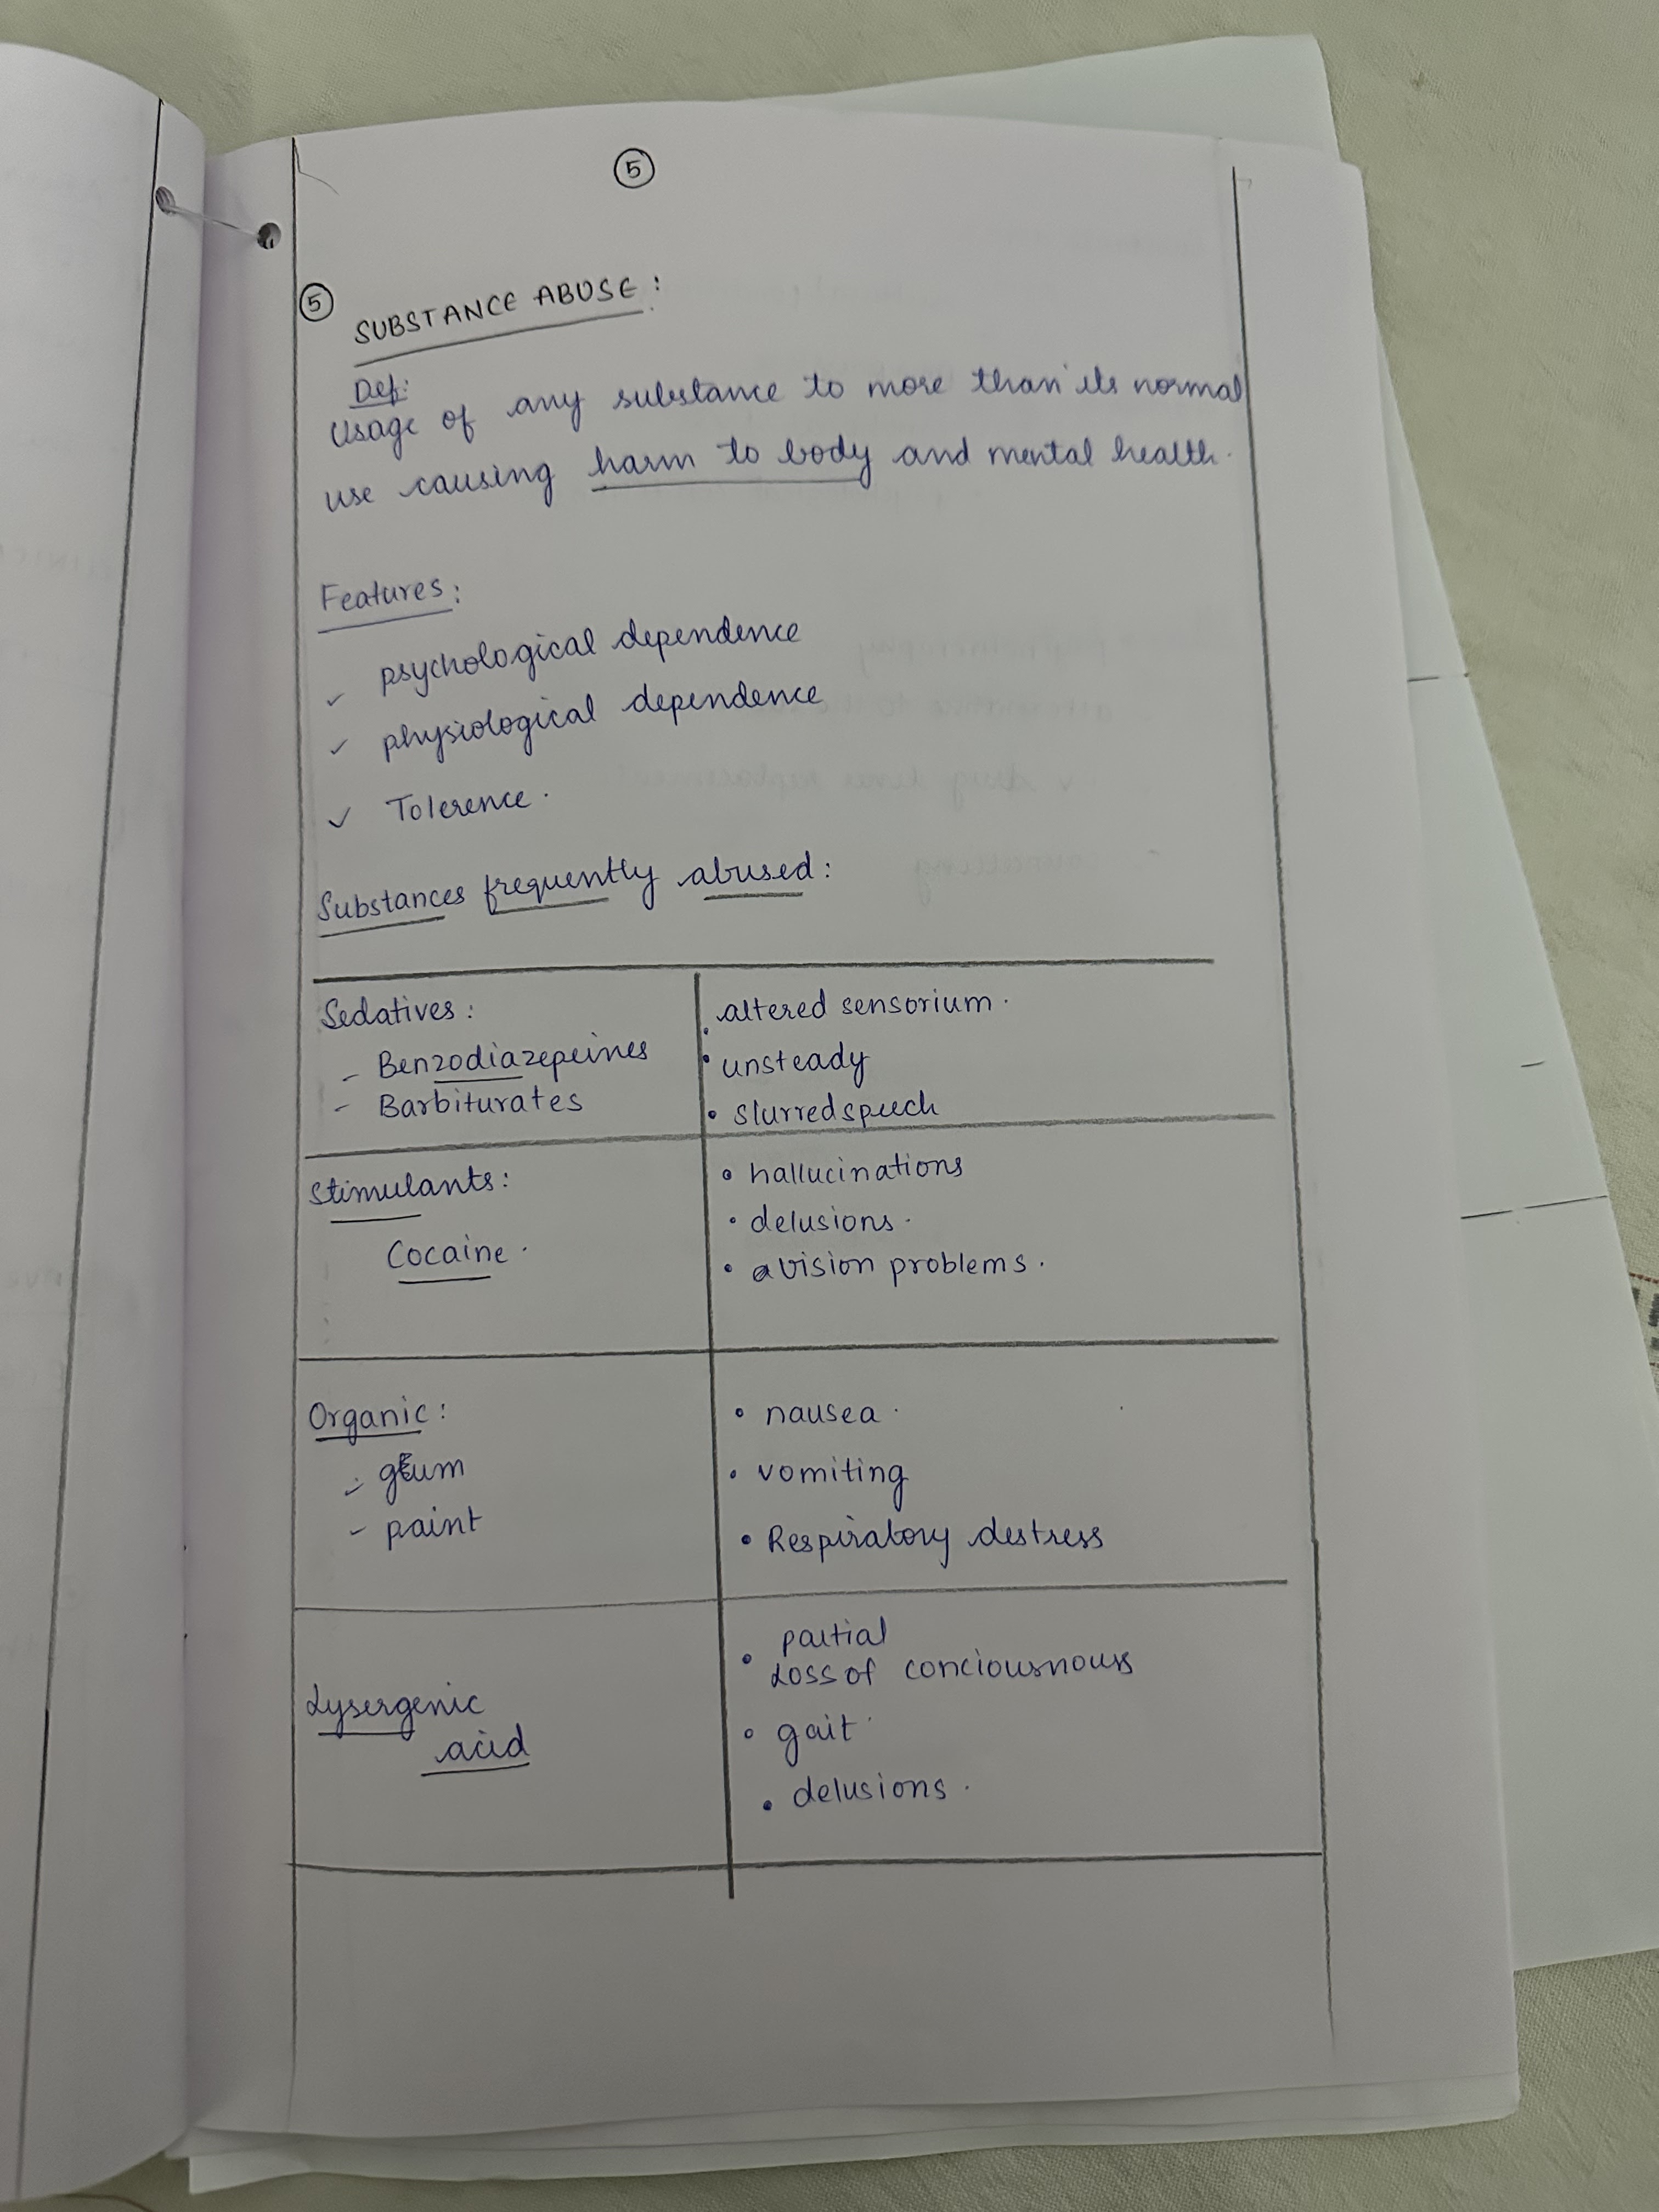 5
5 SUBSTANCE ABUSE :
Def:
Usage of any substance to more than its normal
use causing harm to body and mental health.
Features :
✓ psychological dependence
✓ physiological dependence
✓ Tolerence.
Substances frequently abused :
Sedatives :
- Benzodiazepeines
- Barbiturates
• altered sensorium.
• unsteady
• slurred speech
Stimulants :
Cocaine.
• hallucinations
• delusions.
• vision problems.
Organic :
- gum
- paint
• nausea.
• vomiting
• Respiratory distress
Lysergenic
acid
• partial
Loss of conciousnouss
• gait
• delusions.